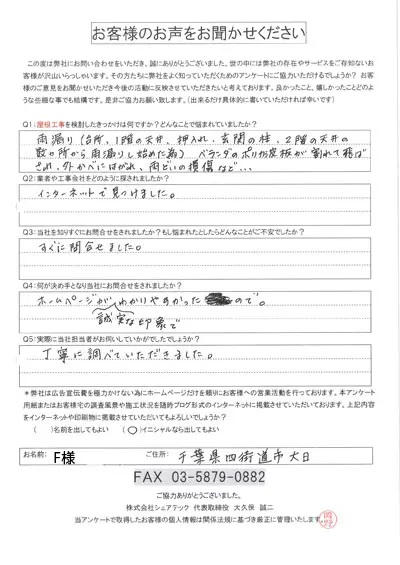 お客様のお声をお聞かせください
この度は弊社にお問い合わせをいただき、誠にありがとうございました。世の中には弊社の存在やサービスをご存知ないお
客様が沢山いらっしゃいます。その方たちに弊社をよく知っていただくためのアンケートにご協力いただけるでしょうか？ お客
様のご意見をお聞かせいただき今後の活動に反映させていただきたいと考えております。良かったこと、嬉しかったことどのよ
うな些細な事でも結構です。是非ご協力お願い致します。(出来るだけ具体的に書いていただければ幸いです)
Q1：屋根工事を検討したきっかけは何ですか？どんなことで悩まれていましたか？
雨漏り（台所、1階の天井、押入れ、玄関の柱、2階の天井の
数ヶ所から雨漏りし始めた為） ベランダのポリカ波板が割れて飛ば
され、外かべにはがれ、雨どいの損傷など...
Q2：業者や工事会社をどのように探されましたか？
インターネットで見つけました。
Q3：当社を知りすぐにお問合せをされましたか？もし悩まれたとしたらどんなことがご不安でしたか？
すぐに問合せました。
Q4：何が決め手となり当社にお問合せをされましたか？
ホームページがわかりやすかったので。
誠実な印象で
Q5：実際に当社担当者がお伺いしていかがでしたでしょうか？
丁寧に調べていただきました。
＊弊社は広告宣伝費を極力かけない為にホームページだけを頼りにお客様への営業活動を行っております。本アンケート
用紙またはお客様宅の調査風景や施工状況を随時ブログ形式のインターネットに掲載させていただいております。上記内容
をインターネットや印刷物に掲載させていただいてもよろしいでしょうか？
（ ）名前を出してもよい （○）イニシャルなら出してもよい
お名前： F様 ご住所： 千葉県四街道市大日
FAX 03-5879-0882
ご協力ありがとうございました。
株式会社シェアテック 代表取締役 大久保 誠二
当アンケートで取得したお客様の個人情報は関係法規に基づき厳正に管理いたします。